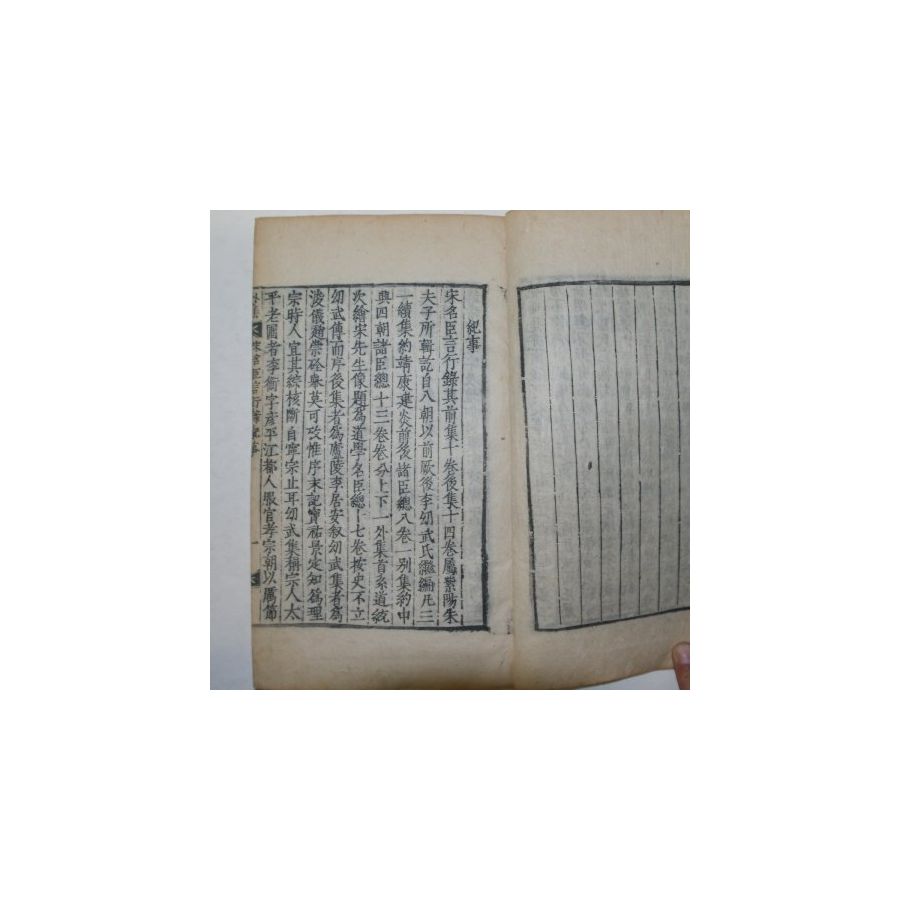 紀事
宋名臣言行錄其前集十卷後集十四卷屬紫陽朱
夫子所輯訖自八朝以前厥後李幼武氏繼編凡三
一續集約靖康建炎前後諸臣總八卷一別集約中
興四朝諸臣總十三卷卷分上下一外集首系道統
次繪宋先生像題爲道學名臣總十七卷按史不立
幼武傳而序後集者爲廬陵李居安叙幼武集者爲
浚儀趙崇硂舉莫可攷惟序末記寶祐景定知爲理
宗時人宜其綜核斷自寧宗止耳幼武集稱宗人太
平老圃者李衡字彥平江都人歷官孝宗朝以厲節